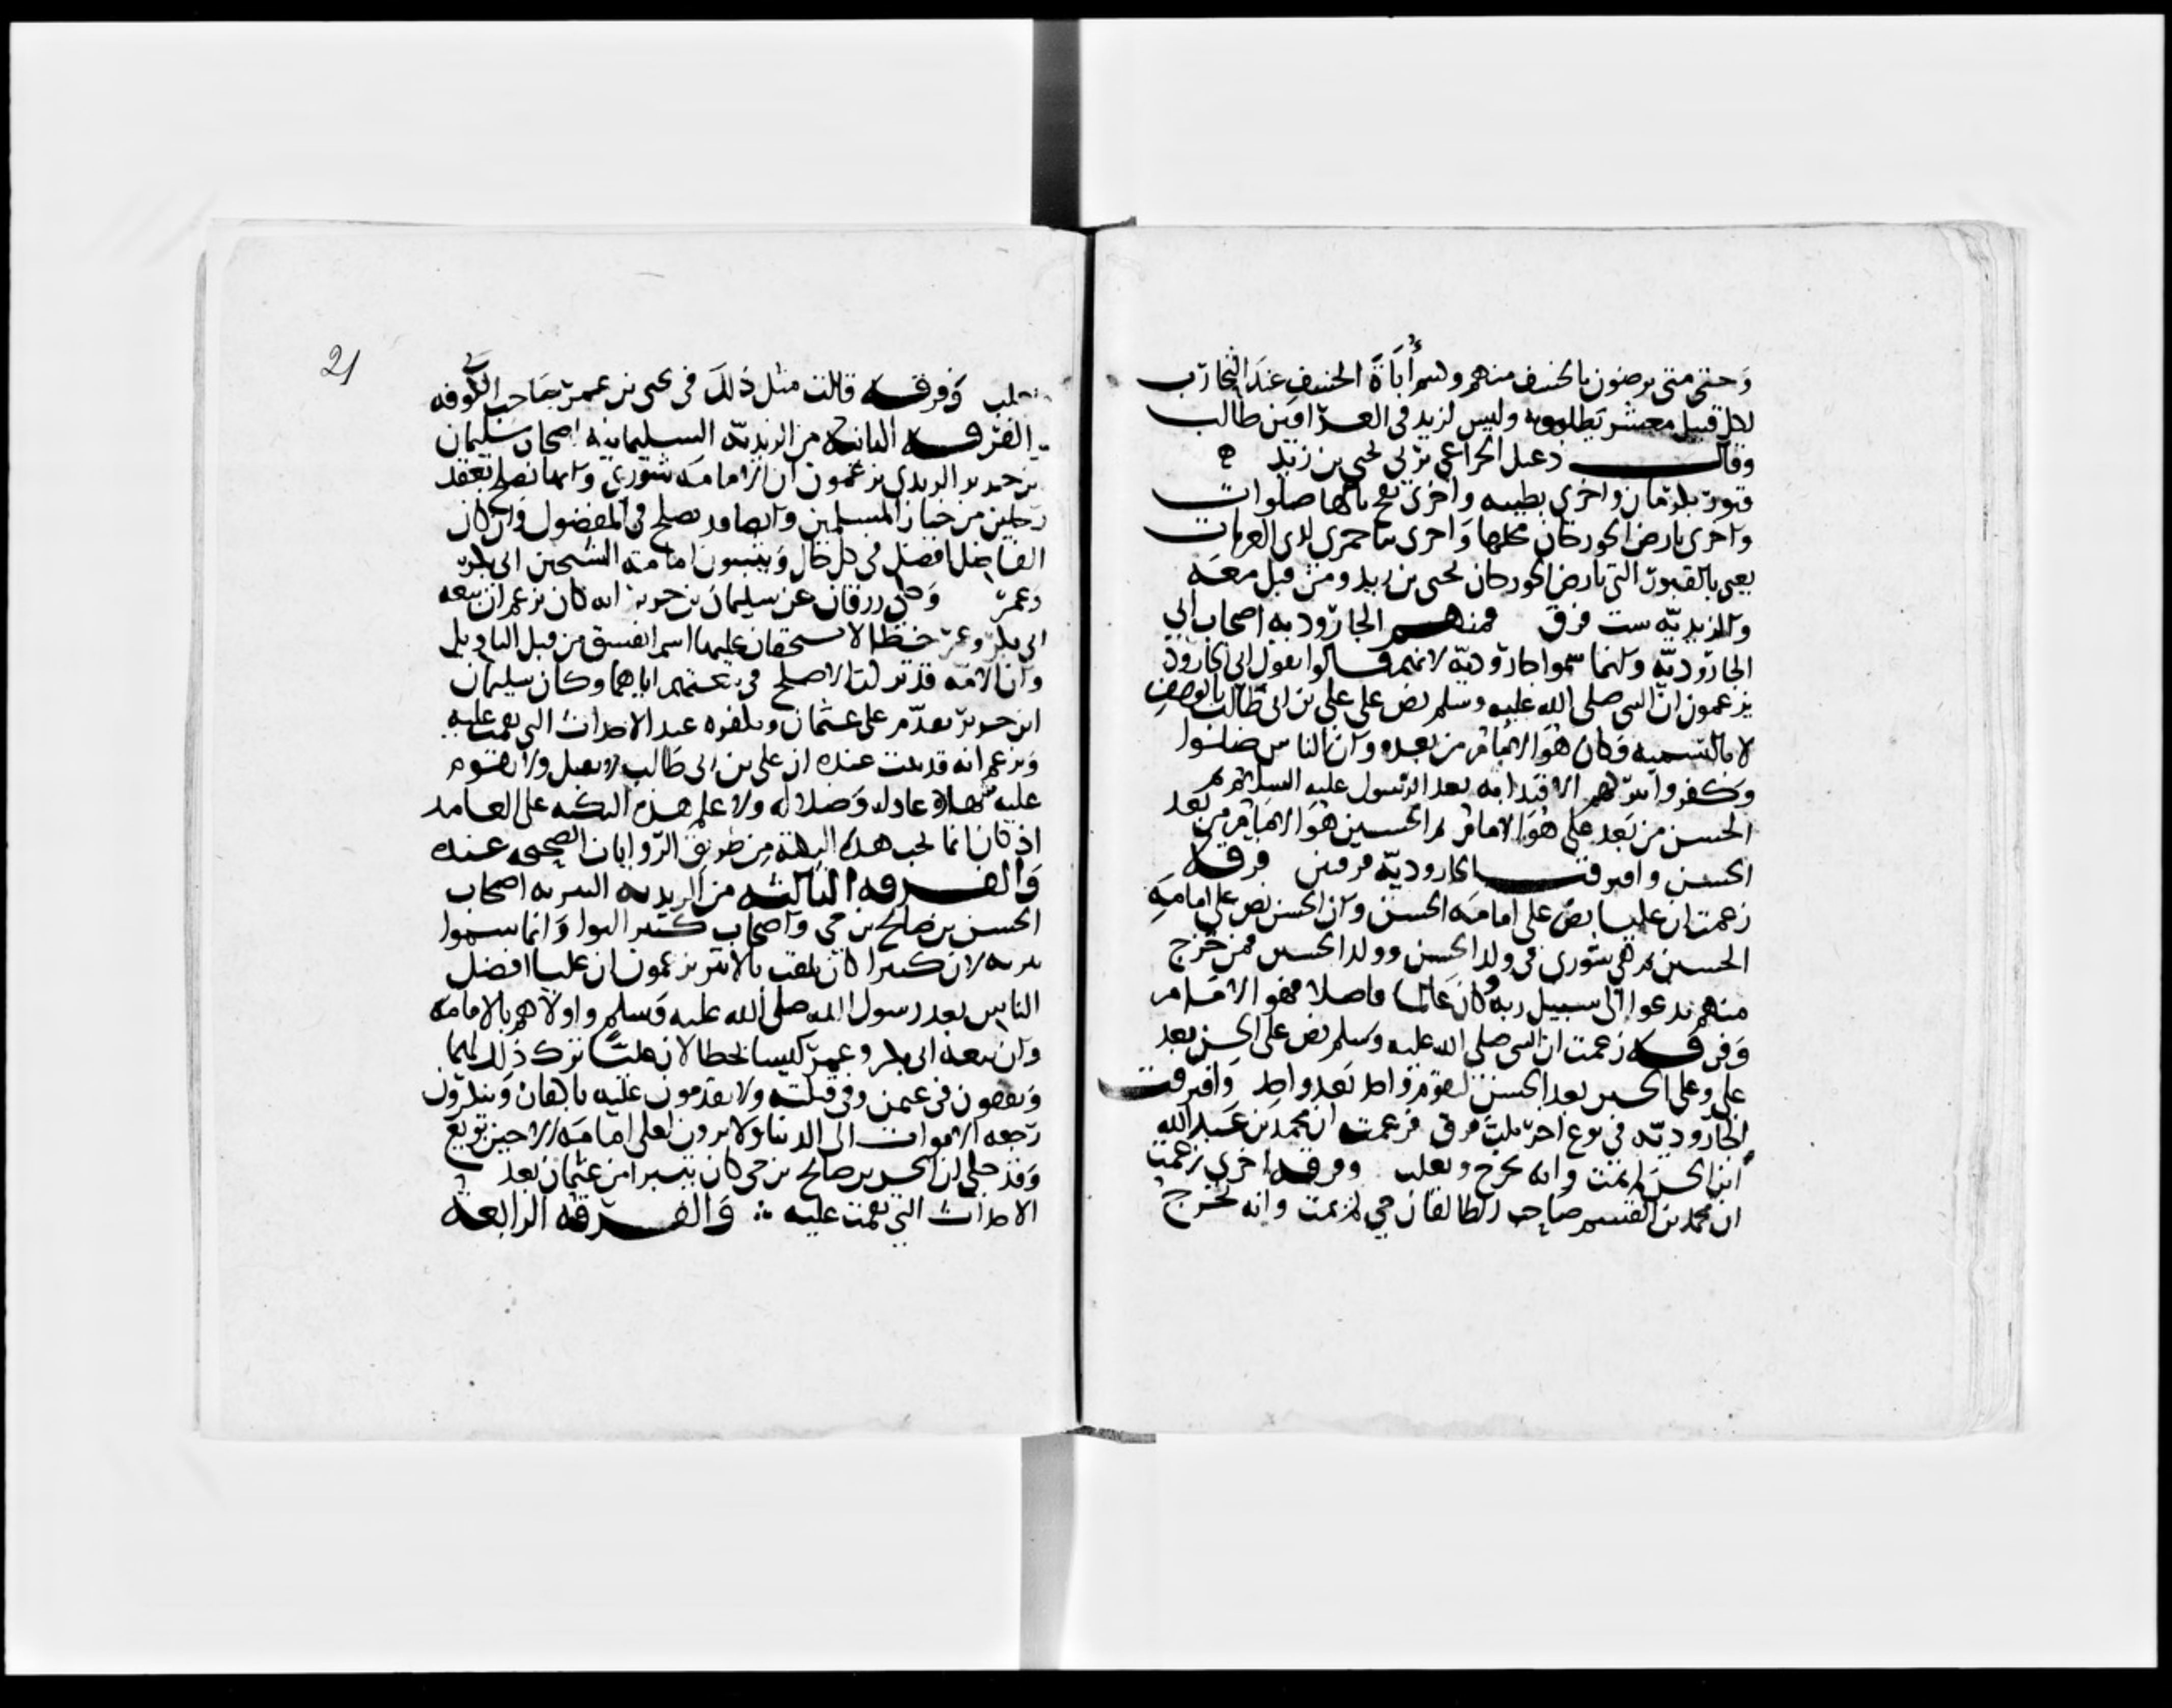 وحتى متى ترضون بالخسف منهم وسم أباة الخسف عند التجارب
لكل قتيل معشر يطلبونه وليس لزيد في العراقين طالب
وقال دعبل الخزاعي يرثي لحيى بن زيد
قبور بكوفان واخرى بطيبه واخرى بفخ نالها صلوات
واخرى بارض الجوزجان محلها واخرى بباخمرى لدى الغربات
يعني بالقبور التي بارض الجوزجان يحيى بن زيد ومن قتل معه
والزيديه ست فرق فمنهم الجاروديه اصحاب ابي
الجاروديه وانما سموا جاروديه لانهم قالوا بقول ابي الجارود
يزعمون ان النبي صلى الله عليه وسلم نص على علي بن ابي طالب بالوصف
لا بالتسميه فكان هو الامام من بعده وان الناس ضلوا
وكفروا بتركهم الاقتدا به بعد الرسول عليه السلام ثم
الحسن من بعد علي هو الامام ثم الحسين هو الامام من بعد
الحسن وافترقت الجاروديه فرقتين فرقه
زعمت ان عليا نص على امامه الحسن وان الحسن نص على امامه
الحسين ثم هي شورى في ولد الحسن وولد الحسين فمن خرج
منهم يدعوا الى سبيل ربه وكان عالما فاضلا فهو الامام
وفرقه زعمت ان النبي صلى الله عليه وسلم نص على الحسن بعد
علي وعلى الحسين بعد الحسن ليقوم واحد بعد واحد وافترقت
الجاروديه في نوع اخر ثلث فرق فزعمت ان محمد بن عبد الله
ابن الحسن لم يمت وانه يخرج ويغلب وفرقه اخرى زعمت
ان محمد بن القسم صاحب الطالقان حي لم يمت وانه يخرج
ويغلب وفرقه قالت مثل ذلك في يحيى بن عمر صاحب الكوفه
والفرقه الثانيه من الزيديه السليمانيه اصحاب سليمان
بن جرير الزيدي يزعمون ان الامامه شورى وانها تصلح بعقد
رجلين من خيار المسلمين وانها قد تصلح في المفضول وان كان
الفاضل افضل في كل حال ويثبتون امامه الشيخين ابي بكر
وعمر وحكى زرقان عن سليمان بن جرير انه كان يزعم ان بيعه
ابي بكر وعمر خطا لا يستحقان عليها اسم الفسق من قبل التاويل
وان الامه قد تركت الاصلح في بيعتهم اياهما وكان سليمان
ابن جرير يقدم على عثمان ويكفره عند الاحداث التي نقمت عليه
ويزعم انه قد ثبت عنده ان علي بن ابي طالب لا يضل ولا تقوم
عليه شهاده عادله بضلاله ولا علم هذه النكته على العامه
اذ كان انما يجب هذه النكته من طريق الروايات الصحيحه عنده
والفرقه الثالثه من الزيديه البتريه اصحاب
الحسن بن صالح بن حي واصحاب كثير النوا وانما سموا
بتريه لان كثيرا كان يلقب بالابتر يزعمون ان عليا افضل
الناس بعد رسول الله صلى الله عليه وسلم واولاهم بالامامه
وان بيعه ابي بكر وعمر ليست بخطا لان عليا ترك ذلك لهما
ويقفون في عثمن وفي قتلته ولا يقدمون عليه باكفار وينكرون
رجعه الاموات الى الدنيا ولا يرون لعلي امامه الا حين بويع
وقد حكي ان الحسن بن صالح بن حي كان يتبرا من عثمان بعد
الاحداث التي نقمت عليه ∴ والفرقه الرابعه
21